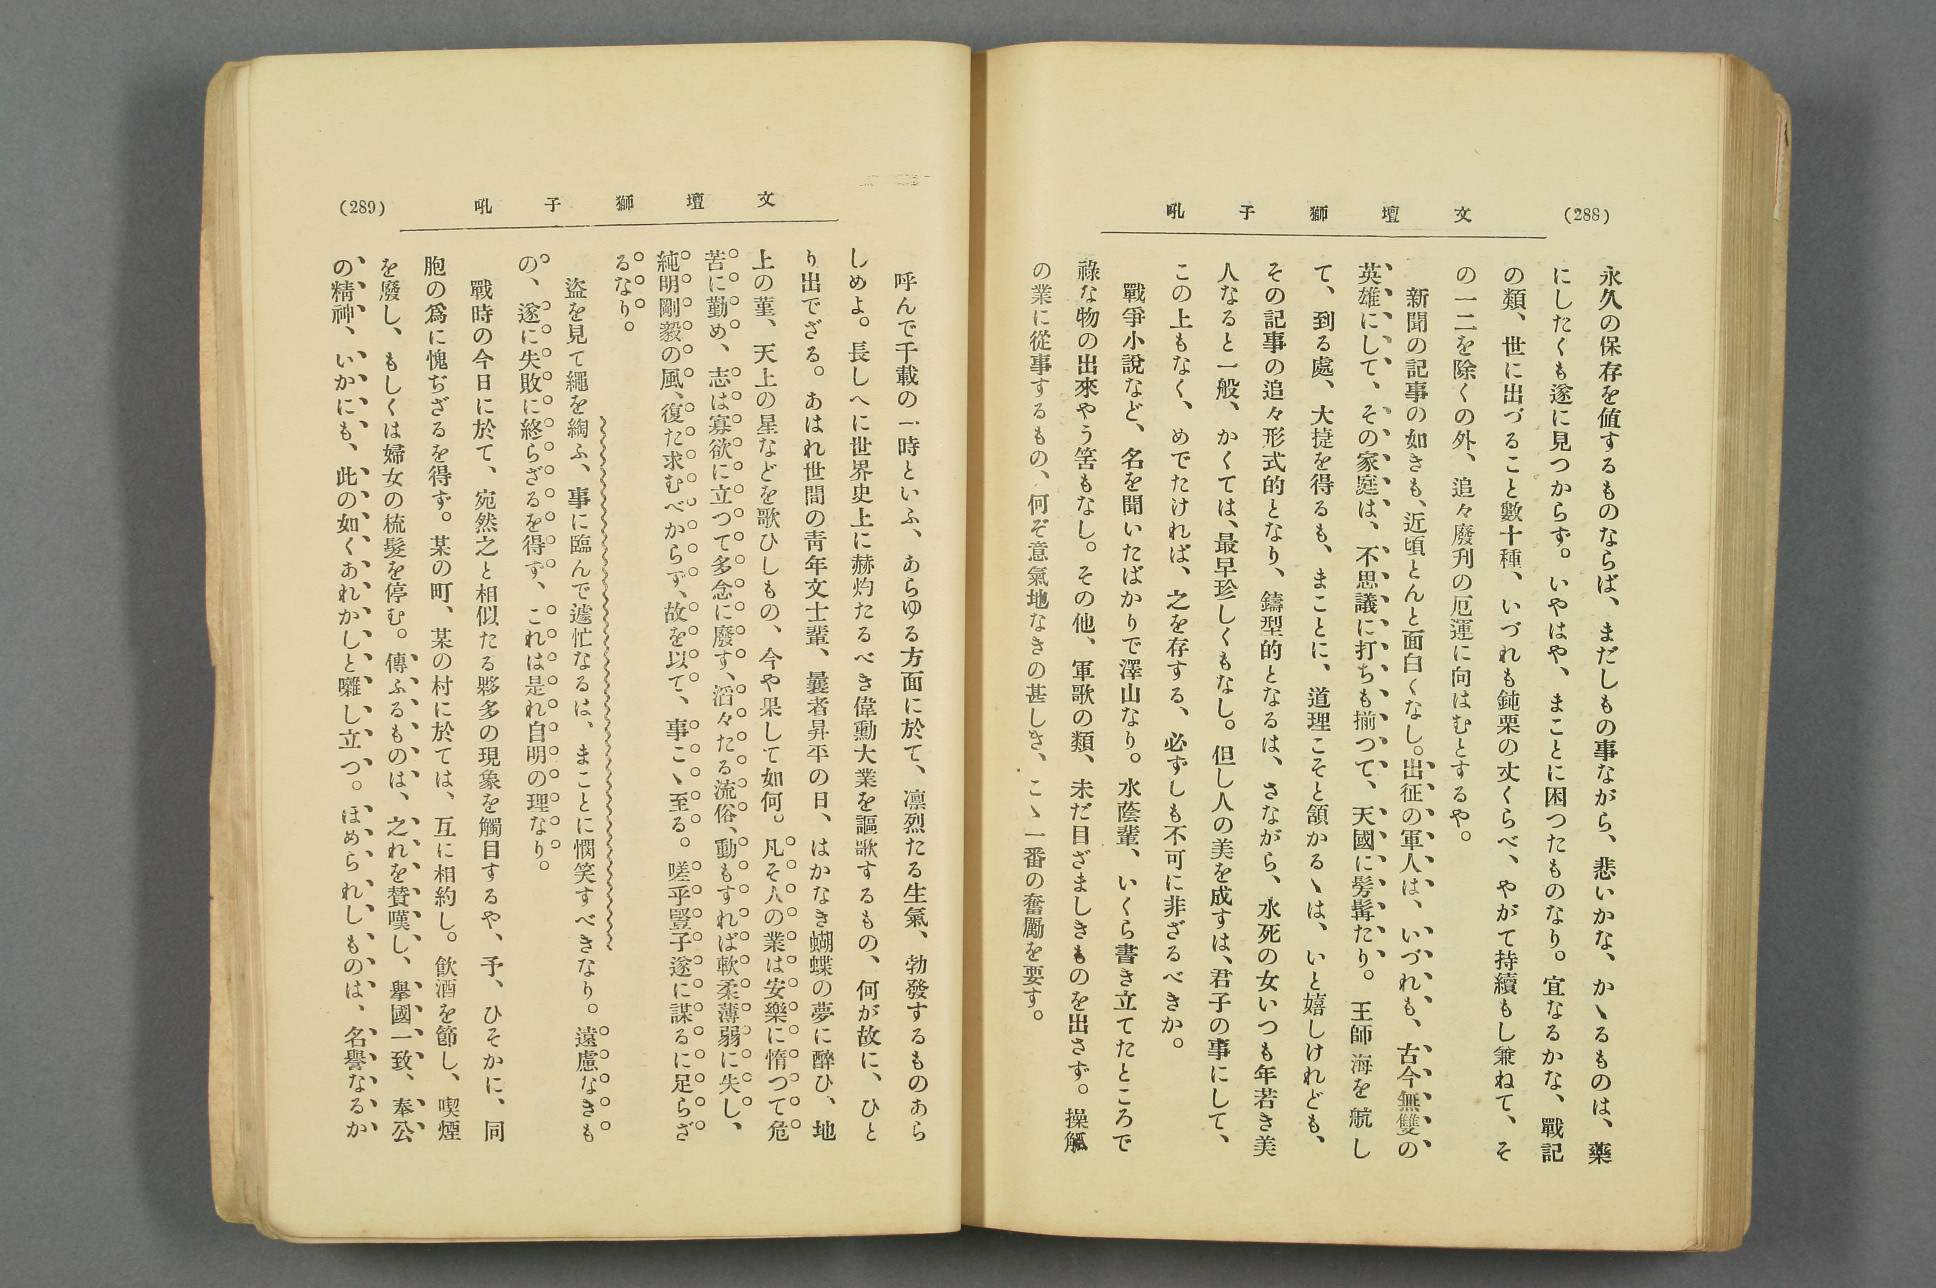 (288)
文壇獅子吼
永久の保存を値するものならば、まだしもの事ながら、悲いかな、かゝるものは、藥
にしたくも遂に見つからず。いやはや、まことに困つたものなり。宜なるかな、戰記
の類、世に出づること數十種、いづれも鈍栗の丈くらべ、やがて持續もし兼ねて、そ
の一二を除くの外、追々廢刋の厄運に向はむとするや。
新聞の記事の如きも、近頃とんと面白くなし。出征の軍人は、いづれも、古今無雙の
英雄にして、その家庭は、不思議に打ちも揃つて、天國に髣髴たり。王師海を航し
て、到る處、大捷を得るも、まことに、道理こそと頷かるゝは、いと嬉しけれども、
その記事の追々形式的となり、鑄型的となるは、さながら、水死の女いつも年若き美
人なると一般、かくては、最早珍しくもなし。但し人の美を成すは、君子の事にして、
この上もなく、めでたければ、之を存する、必ずしも不可に非ざるべきか。
戰爭小說など、名を聞いたばかりで澤山なり。水蔭輩、いくら書き立てたところで
祿な物の出來やう筈もなし。その他、軍歌の類、未だ目ざましきものを出さず。操觚
の業に從事するもの、何ぞ意氣地なきの甚しき、こゝ一番の奮勵を要す。
文壇獅子吼
(289)
呼んで千載の一時といふ、あらゆる方面に於て、凛烈たる生氣、勃發するものあら
しめよ。長しへに世界史上に赫灼たるべき偉勳大業を謳歌するもの、何が故に、ひと
り出でざる。あはれ世間の靑年文士輩、曩者昇平の日、はかなき蝴蝶の夢に醉ひ、地
上の菫、天上の星などを歌ひしもの、今や果して如何。凡そ人の業は安樂に惰つて危
苦に勤め、志は寡欲に立つて多念に廢す、滔々たる流俗、動もすれば軟柔薄弱に失し、
純明剛毅の風、復た求むべからず、故を以て、事こゝ至る。嗟乎豎子遂に謀るに足らざ
るなり。
盜を見て繩を綯ふ、事に臨んで遽忙なるは、まことに憫笑すべきなり。遠慮なきも
の、遂に失敗に終らざるを得ず、これは是れ自明の理なり。
戰時の今日に於て、宛然之と相似たる夥多の現象を觸目するや、予、ひそかに、同
胞の爲に愧ぢざるを得ず。某の町、某の村に於ては、互に相約し。飮酒を節し、喫煙
を廢し、もしくは婦女の梳髮を停む。傳ふるものは、之れを贊嘆し、擧國一致、奉公
の精神、いかにも、此の如くあれかしと囃し立つ。ほめられしものは、名譽なるか